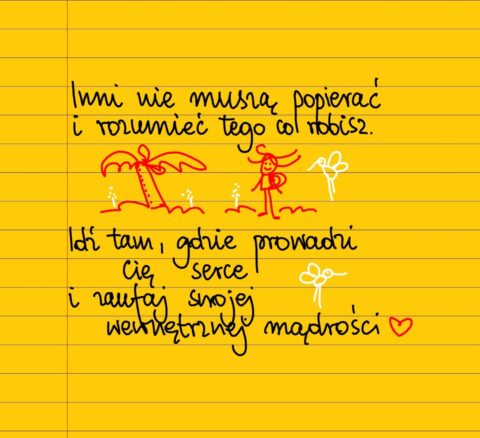 Inni nie muszą popierać
i rozumieć tego co robisz.
Idź tam, gdzie prowadzi
cię serce
i zaufaj swojej
wewnętrznej mądrości